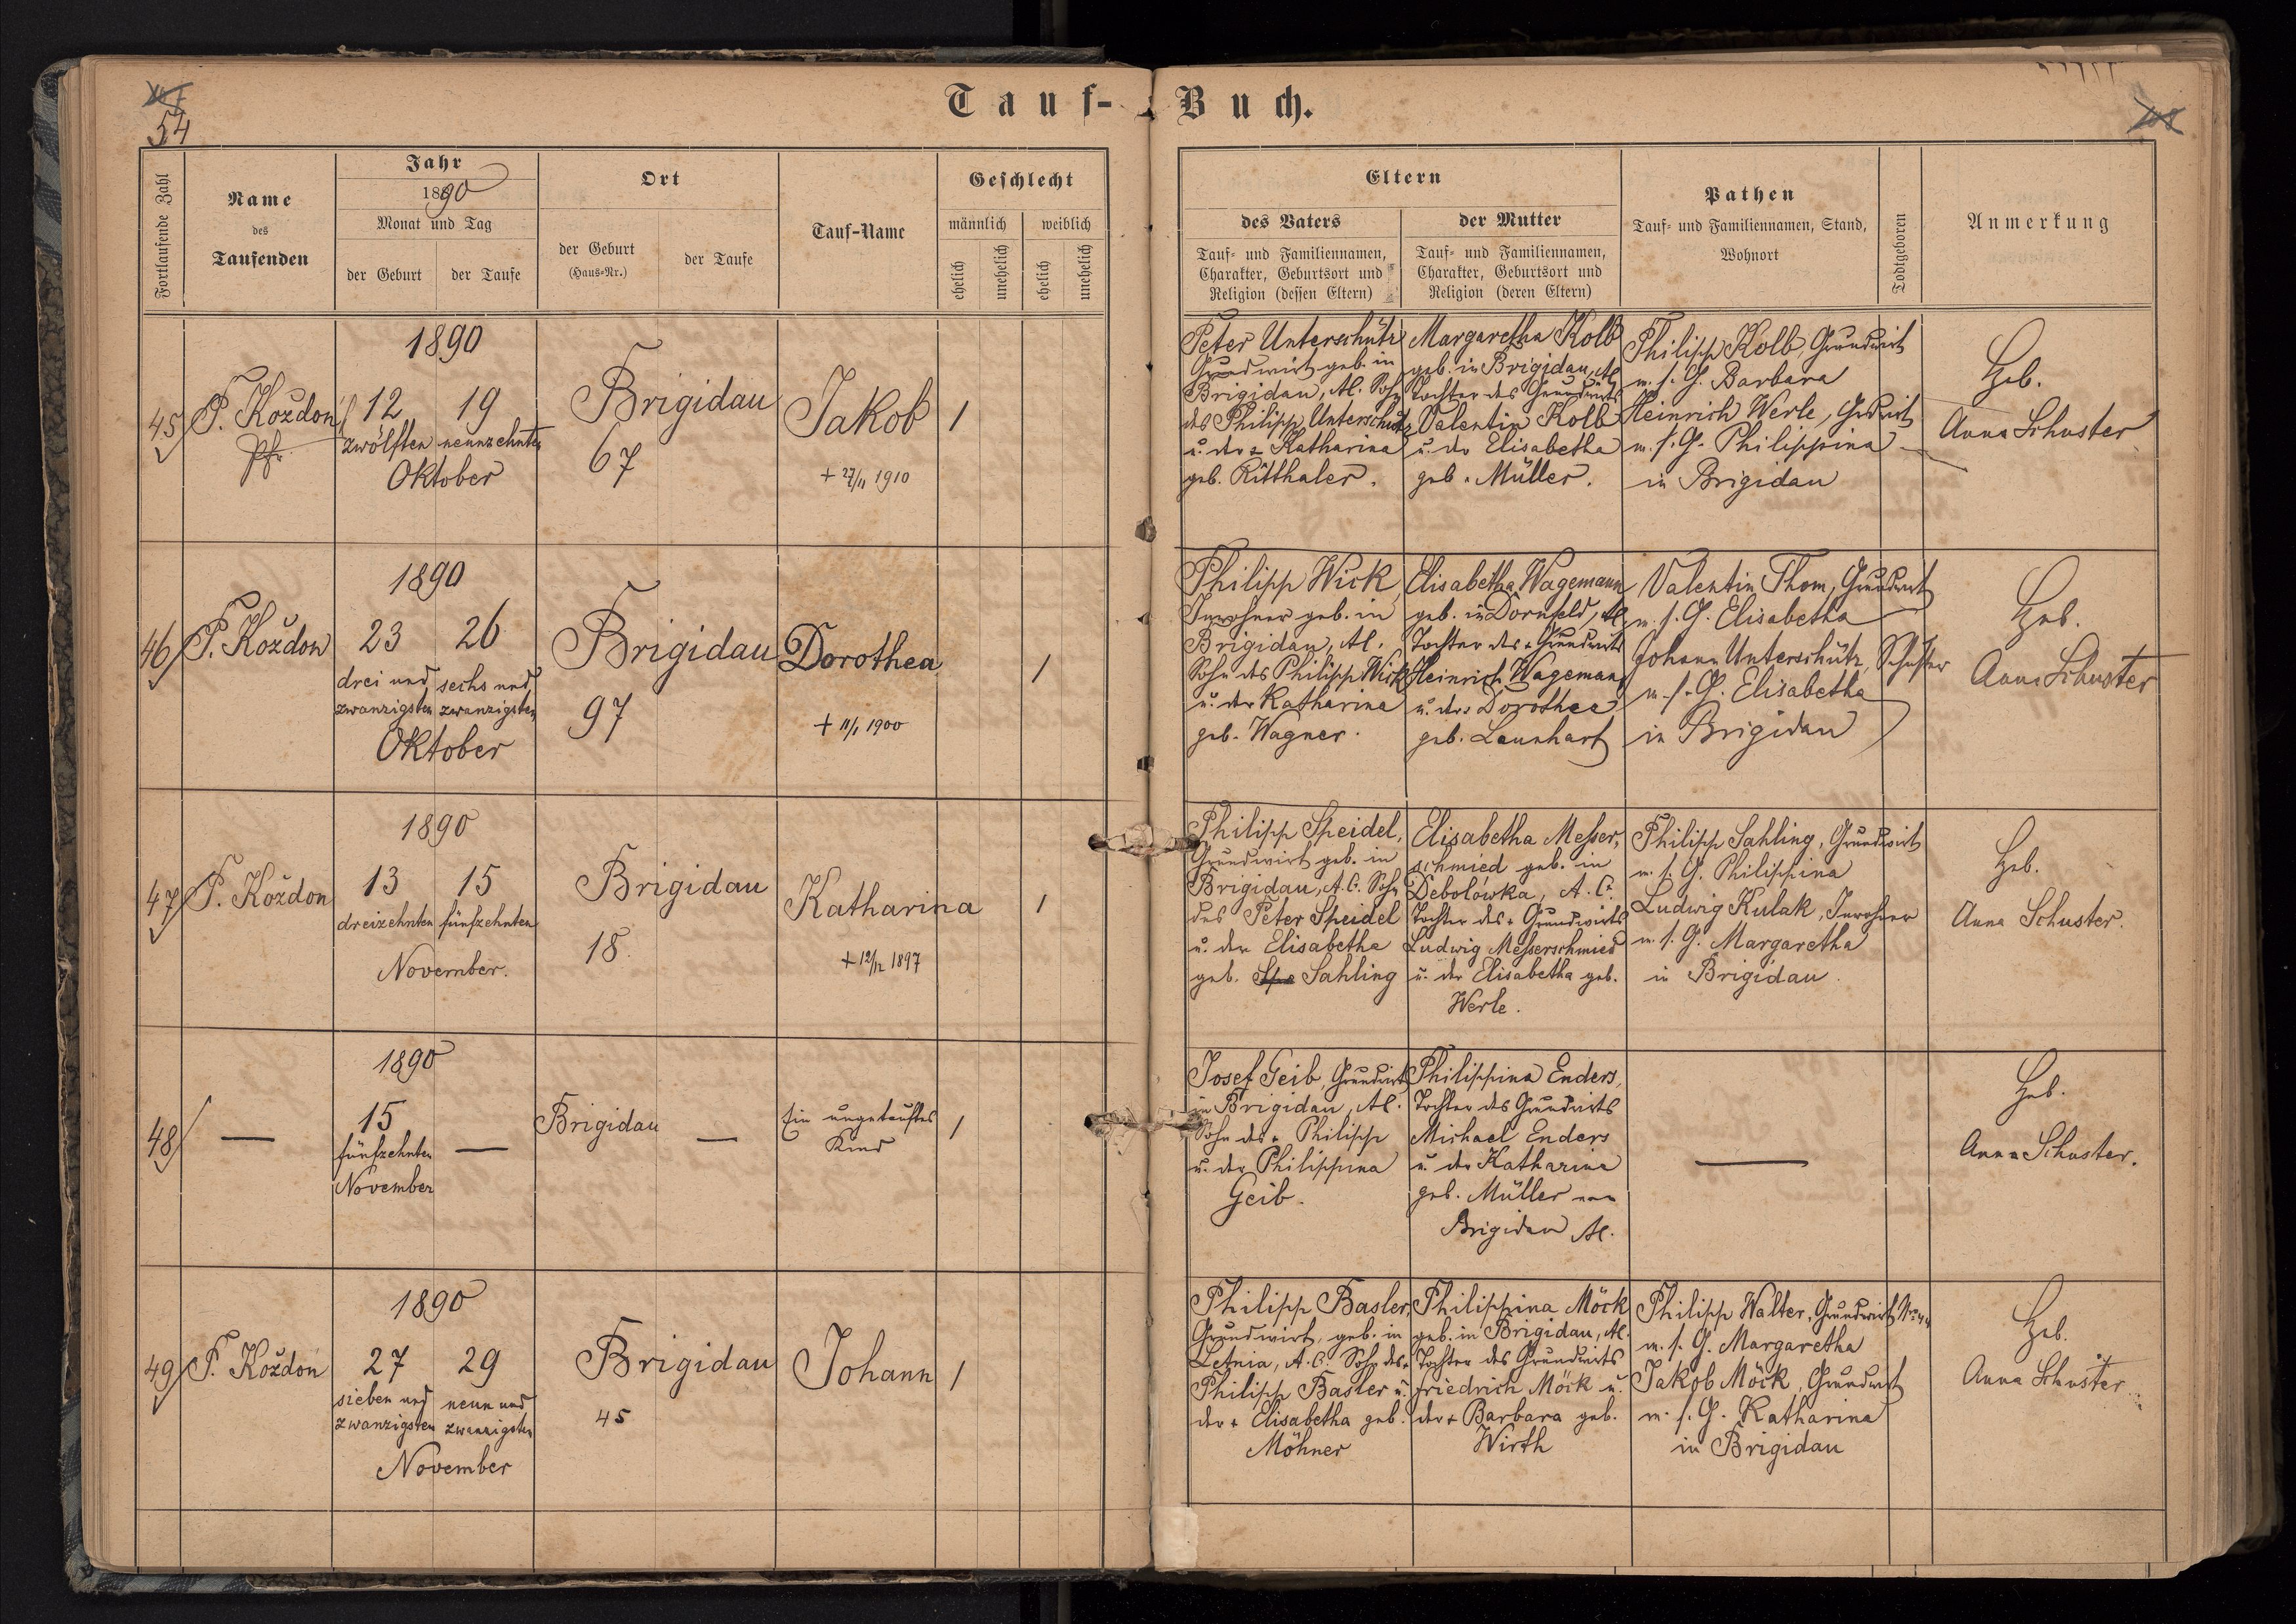 54
Tauf-Buch.
Fortlaufende Zahl
Name
des
Taufenden
Jahr
1890
Monat und Tag
der Geburt
der Taufe
Ort
der Geburt
(Haus-Nr.)
der Taufe
Tauf-Name
Geschlecht
männlich
weiblich
ehelich
unehelich
ehelich
unehelich
Eltern
des Vaters
Tauf- und Familiennamen,
Charakter, Geburtsort und
Religion (dessen Eltern)
der Mutter
Tauf- und Familiennamen,
Charakter, Geburtsort und
Religion (deren Eltern)
Pathen
Tauf- und Familiennamen, Stand,
Wohnort
Todtgeboren
Anmerkung
45
P. Koždoń
Pfr.
1890
12 19
zwölften neunzehnten
Oktober
Brigidau
67
Jakob
+ 27/11 1910
1
Peter Unterschütz
Grundwirt geb. in
Brigidau, AC. Sohn
des Philipp Unterschütz
u. der + Katharina
geb. Ritthaler.
Margaretha Kolb
geb. in Brigidau, AC
Tochter des Grundwirts
Valentin Kolb
u. der Elisabetha
geb. Müller.
Philipp Kolb, Grundwirt
m. s. G. Barbara
Heinrich Werle, Grdwirt
m. s. G. Philippina
in Brigidau
Heb.
Anna Schuster
46
P. Koždoń
1890
23 26
drei und sechs und
zwanzigsten zwanzigsten
Oktober
Brigidau
97
Dorothea
+ 11/1 1900
1
Philipp Wick
Inwohner geb. in
Brigidau, AC.
Sohn des Philipp Wick
u. der Katharina
geb. Wagner.
Elisabetha Wagemann
geb. in Dornfeld, AC.
Tochter des + Grundwirts
Heinrich Wagemann
u. der + Dorothea
geb. Leunhart
Valentin Thom, Grundwirt
m. s. G. Elisabetha
Johann Unterschütz, Schuster
m. s. G. Elisabetha
in Brigidau
Heb.
Anna Schuster
47
P. Koždon
1890
13 15
dreizehnten fünfzehnten
November.
Brigidau
18.
Katharina
+ 12/12 1897
1
Philipp Speidel,
Grundwirt geb. in
Brigidau, A.C. Sohn
des Peter Speidel
u. der Elisabetha
geb. Spe Sahling
Elisabetha Messer,
schmied geb. in
Debolówka, A.C.
Tochter des + Grundwirts
Ludwig Messerschmied
u. der Elisabetha geb.
Werle.
Philipp Sahling, Grundwirt
m. s. G. Philippina
Ludwig Kulak, Inwohner
m. s. G. Margaretha
in Brigidau.
Heb.
Anna Schuster.
48
—
1890
15 —
fünfzehnten
November
Brigidau —
Ein ungetauftes
Kind
1
Josef Geib, Grundwirt
in Brigidau, AC.
Sohn des + Philipp
u. der Philippina
Geib.
Philippina Enders,
Tochter des Grundwirts
Michael Enders
u. der Katharina
geb. Müller von
Brigidau AC.
—
Heb.
Anna Schuster.
49
P. Koždoń
1890
27 29
sieben und neun und
zwanzigsten zwanzigsten
November
Brigidau
45
Johann
1
Philipp Basler,
Grundwirt, geb. in
Letnia, A.C. Sohn des +
Philipp Basler u.
der + Elisabetha geb.
Möhner
Philippina Möck
geb. in Brigidau, AC.
Tochter des Grundwirts
Friedrich Möck u.
der + Barbara geb.
Wirth
Philipp Walter, Grundwirt
m. s. G. Margaretha
Jakob Möck, Grundwirt
m. s. G. Katharina
in Brigidau
Heb.
Anna Schuster